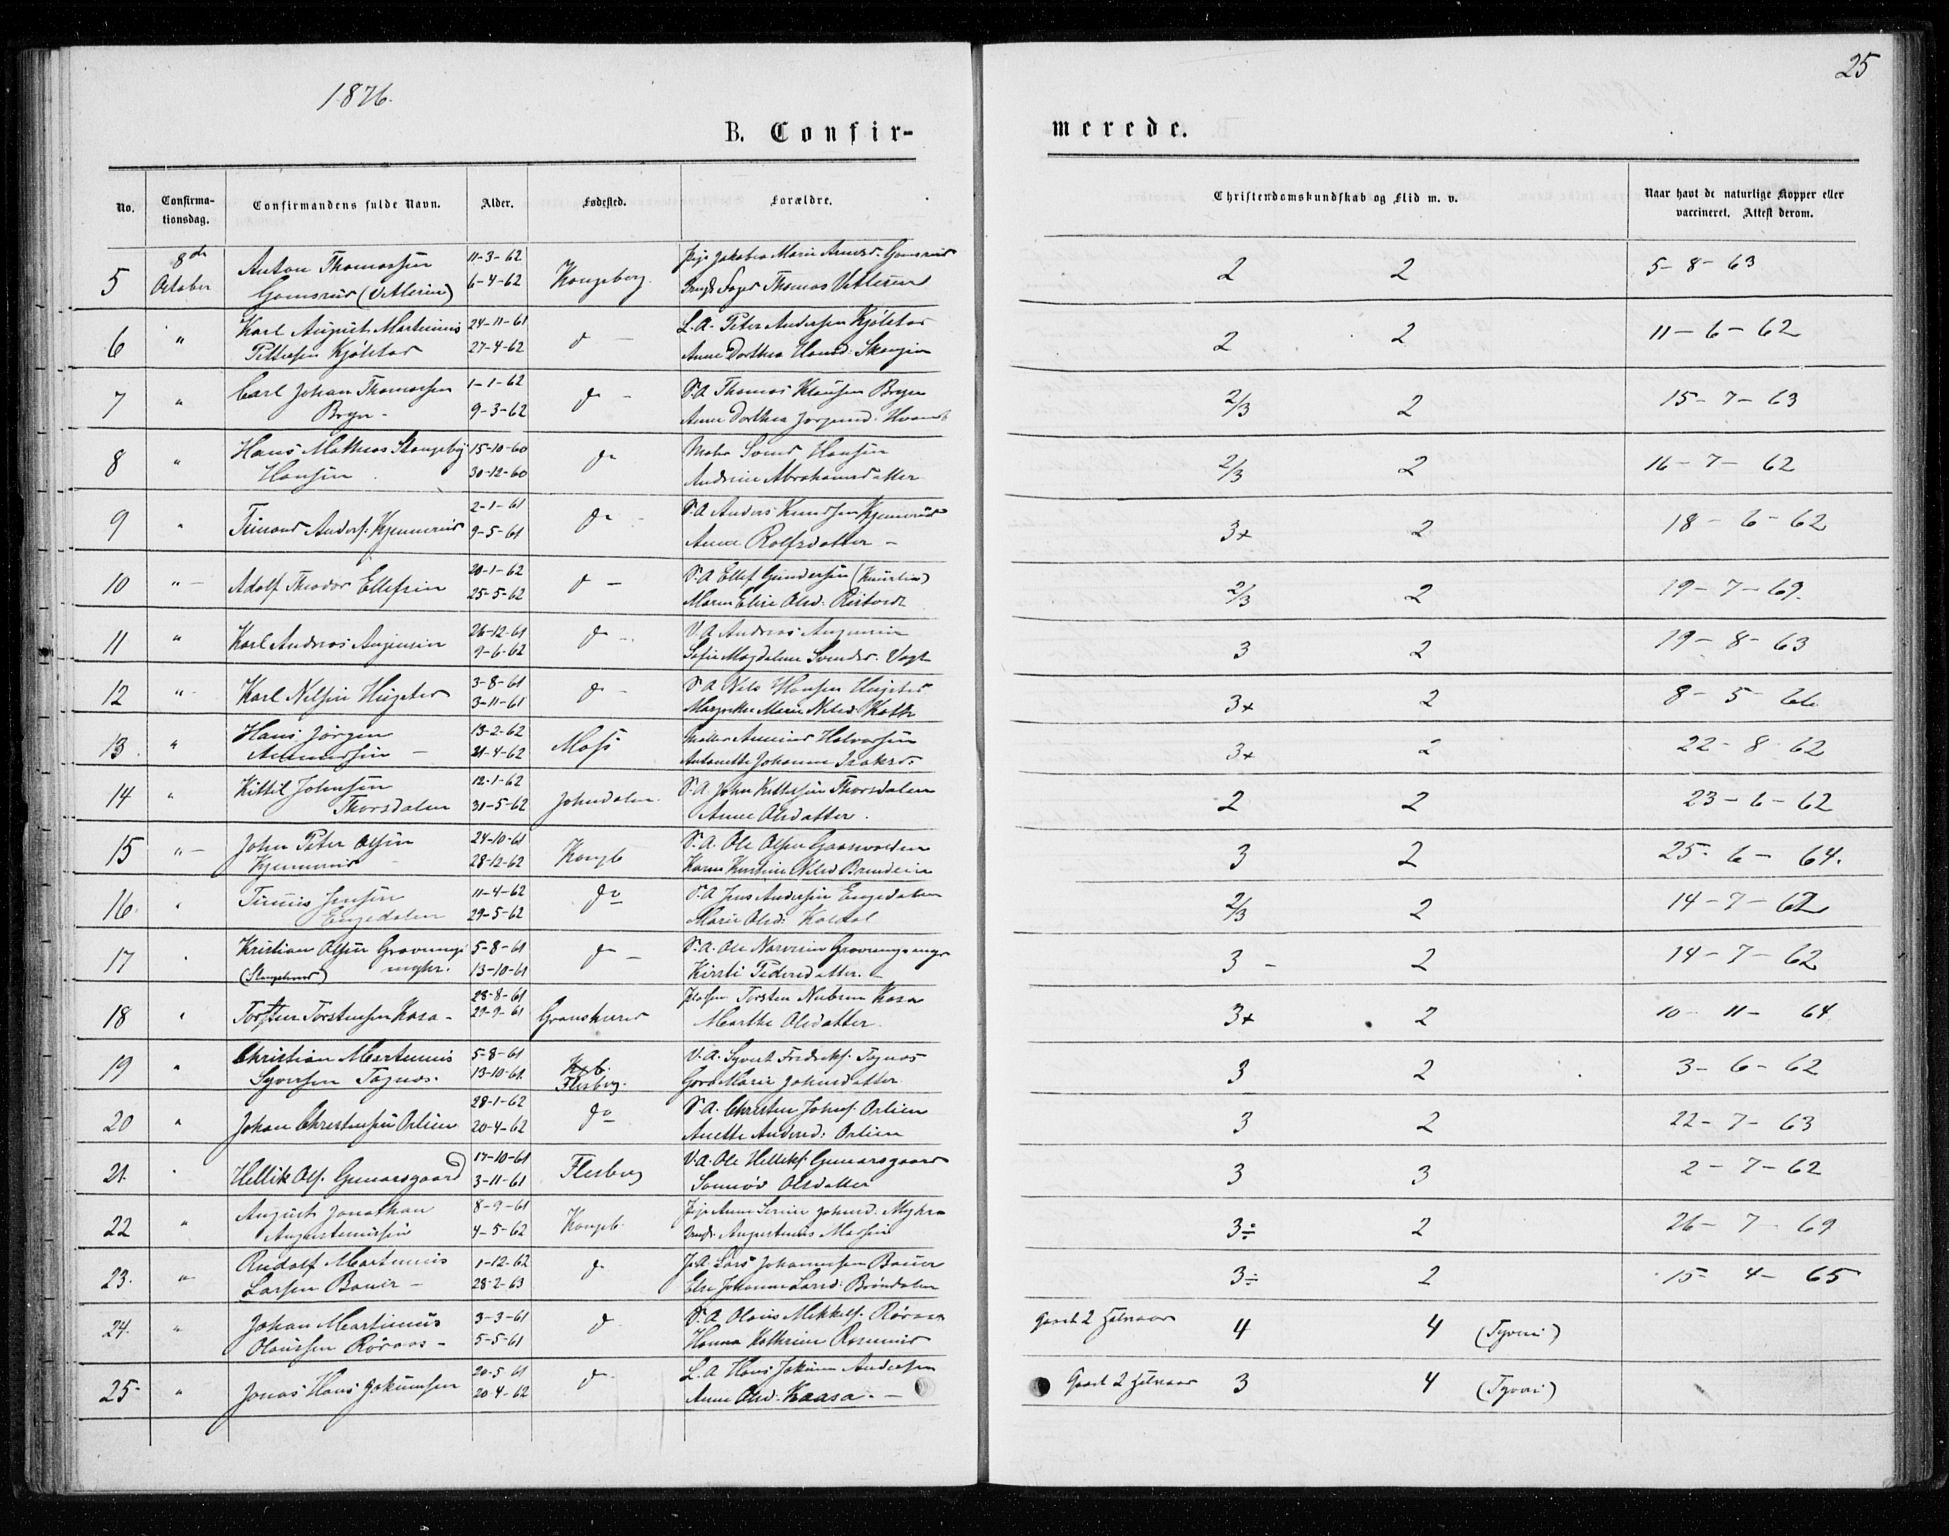 1876.
25
B. Confir-
merede.
No.
Confirma-
tionsdag.
Confirmandens fulde Navn.
Alder.
Fødested.
Forældre.
Christendomskundskab og Flid m. v.
Naar havt de naturlige Kopper eller
vaccineret. Attest derom.
5 8de October Anton Thomassen 11-3-62
Gomsrud (Vetlerud) 6-4-62 Kongsberg
Pige Jakobea Marie Gomsrud
Thomas Vetlerud
2 2 5-8-63
6 " Karl August Martinius 24-11-61
Pettersen Kjølstad 27-4-62 do -
L.A. Peter Andersen Kjølstad
Anne Dorthea
2 2 11-6-62
7 " Carl Johan Thomassen 1-1-62
Bryn - 9-3-62 do -
S.A. Thomas Klausen Bryn
Anne Dorthea
2/3 2 15-7-63
8 " Hans Mathias Stengeby 15-10-60
Hansen 30-12-60 do
Maler Svend Hansen
Andrine Abrahamsdatter
2/3 2 16-7-62
9 " Anders. Kjennerud 2-1-61
9-5-61 do
S.A. Anders Knudsen Kjennerud
Anne Rolfsdatter -
3+ 2 18-6-62
10 "- Adolf Theodor Ellefsen 20-1-62
25-5-62 do -
S.A. Ellef Gundersen
Maren Elise Olsd.
2/3 2 19-7-69.
11 " Karl Andreas 26-12-61
9-6-62 do -
V.A. Andreas
Sofie Magdalene Vogt
3 2 19-8-63
12 " Karl Nilsen 3-8-61
3-11-61 do -
S.A. Nils Hansen
Marie Nilsd.
3+ 2 8-5-66
13. " Hans Jörgen 13-2-62
Amundsen - 21-4-62 Moss
Halvorsen
Antonette Johanne
3+ 2 22-8-62
14 " Kittil Johnsen 12-1-62
Thorsdalen 31-5-62 Johndalen.
S.A. John Kittelsen Thorsdalen
Anne Olsdatter.
2 2 23-6-62
15 "- John Peter Olsen 24-10-61
Kjennerud 28-12-62 Kongsb
S.A. Ole Olsen
Karen Kirstine Nilsd
3 2 25-6-64.
16. " Jensen 11-4-62
Engedalen 29-5-62 do
S.A. Jens Andersen Engedalen
Marie Olsd. Koldal
2/3 2 14-7-62
17 " Kristian Olsen Gravnings- 5-8-61
myhr. 13-10-61 do -
S.A. Ole Gravningsmyr
Kirsti Pedersdatter. -
3 - 2 14-7-62
18 " Torsten Torstensen Kasa - 28-8-61
29-9-61 Granskerud
Torsten Kasa
Marthe Olsdatter.
3+ 2 10-11-64
19 " Christian Martinius 5-8-61
Syversen Tognos. 13-10-61 Kgb. Flesberg.
V.A. Syvert Fredriks. Tognos
Goro Marie Johnsdatter
3 2 3-6-62
20 " Johan Christensen Orlien 28-1-62
20-4-62 do
S.A. Christen Johns. Orlien
Anette Andersd. Orlien
3 2 22-7-63
21. " Hellik Ols. Gunarsgaard 17-10-61
3-11-61 Flesberg
V.A. Ole Helliks. Gunarsgaard
Olsdatter
3 3 2-7-62
22 " August Jonathan 8-9-61
Augustinusen 4-5-62 Kongsb.
Pige Anne Serine Johnsd. Myhra
Augustinus
3÷ 2 26-7-69
23. "- Rudolf Martinius 1-12-62
Larsen Bauer - 28-2-63 do
Lars Johannesen Bauer
Else Johanne Larsd. Brøndalen
3÷ 2 15-4-65
24. " Johan Martinius 3-3-61
Olaussen Røraas - 5-5-61 do
S.A. Olaus Mikkels. Røraas
Hanna Kathrine
Gaaet 2 Halvaar 4 4 (Tyveri)
25- " Jonas Hans Jokumsen 20-5-61
20-4-62 do
L.A. Hans Jokum Andersen
Anne Olsd. Kaasa. -
Gaaet 2 Halvaar 3 4 (Tyveri)